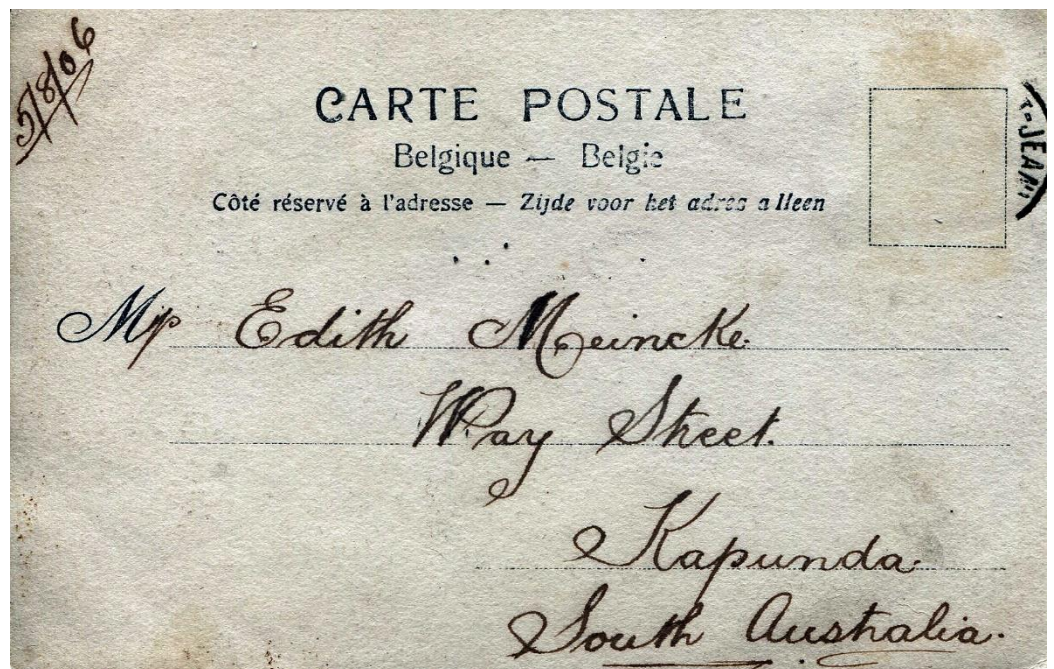 5/8/06
CARTE POSTALE
Belgique — Belgie
Côté réservé à l'adresse — Zijde voor het adres alleen
T-JEAN
Miss Edith Meincke.
Way Street.
Kapunda.
South Australia.